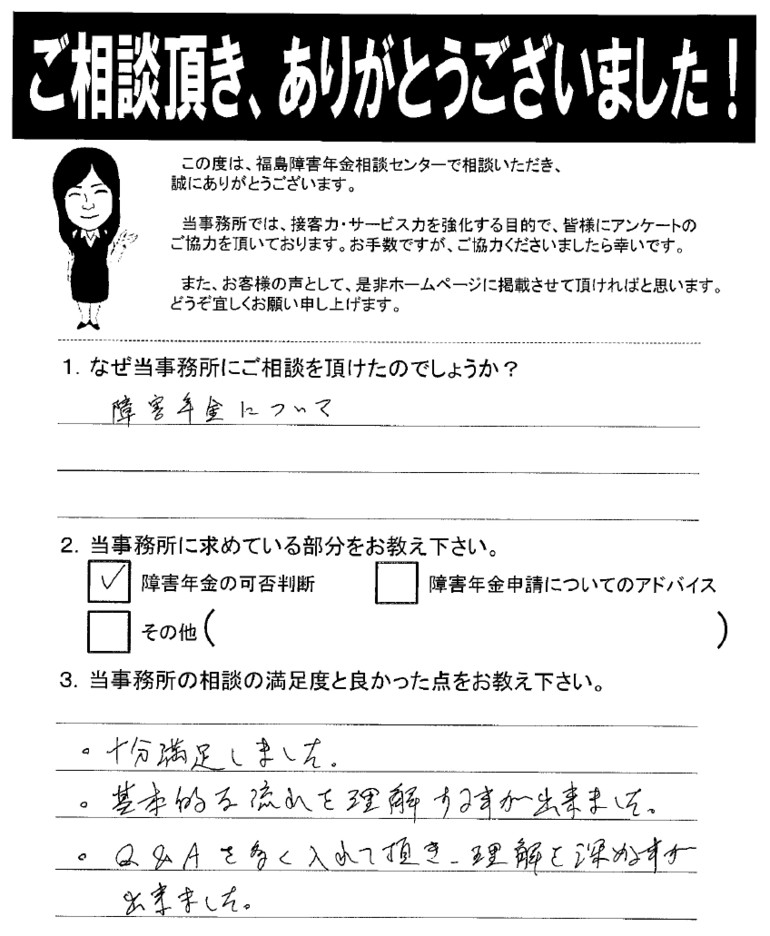 ご相談頂き、ありがとうございました！
この度は、福島障害年金相談センターで相談いただき、
誠にありがとうございます。
当事務所では、接客力・サービス力を強化する目的で、皆様にアンケートの
ご協力を頂いております。お手数ですが、ご協力くださいましたら幸いです。
また、お客様の声として、是非ホームページに掲載させて頂ければと思います。
どうぞ宜しくお願い申し上げます。
1. なぜ当事務所にご相談を頂けたのでしょうか？
障害年金について
2. 当事務所に求めている部分をお教え下さい。
✓ 障害年金の可否判断 障害年金申請についてのアドバイス
その他（ ）
3. 当事務所の相談の満足度と良かった点をお教え下さい。
。十分満足しました。
。基本的な流れを理解する事が出来ました。
。Q&Aを多く入れて頂き、理解を深める事が
出来ました。